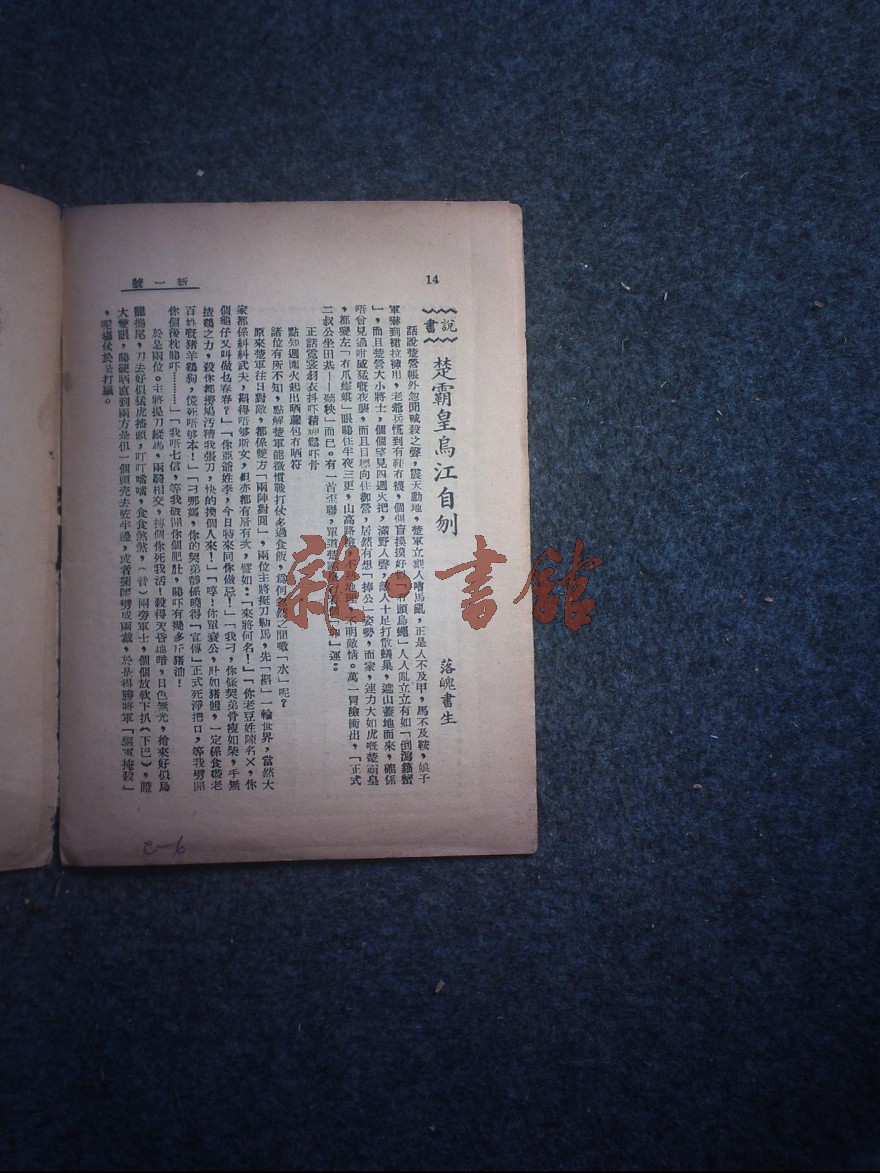 14
新一號
說書
楚霸皇烏江自刎
落魄書生
話說楚營帳外忽聞喊殺之聲，震天動地，楚軍立刻人嘈馬亂，正是人不及甲，馬不及鞍，娘子
軍嚇到裙拉褲甩，老爺兵慌到有鞋冇襪，個個盲摸摸好似「冇頭烏蠅」人人亂立立有如「倒瀉籮蟹
」，而且楚營大小將士，個個望見四週火把，滿野人聲，敵人十足打散鱗果，遮山蓋地而來，確係
唔曾見過咁威猛嘅夜襲，而且目標向住御營，居然有想「捧公」姿勢，而家，連力大如虎嘅楚霸皇
，都變左「冇爪蟛蜞」眼睇住半夜三更，山高路險，不明敵情。萬一冒險衝出，「正式
二叔公坐田基——聽秧」而已。有一首
運：
正話霓裳羽衣抖吓精神鬆吓骨
點知週圍火起出晒蘿包有晒符
諸位有所不知，點解楚軍能徵慣戰打仗多過食飯，為何忽然之間噉「水」呢？
原來楚軍往日對敵，都係雙方「兩陣對圓」，兩位主將挺刀勒馬，先「斟」一輪世界，當然大
家都係糾糾武夫，斟得唔夠斯文，但亦都有層有次，譬如：「來將何名！」「你老豆姓陳名×，你
個龜仔又叫做乜春春？」「你亞爺姓李，今日特來同你做忌！」「我刁，你條契弟骨瘦如柴，手無
揸鷄之力，殺你都撈鳩污糟我張刀，快的換個人來！」「哼！你單衰公，肚如猪乸，一定係食盡老
百姓嘅猪羊鷄狗，慌死唔夠本！」「刁那媽，你的契弟靜係曉得「宣傳」正式死淨把口，等我劈開
你個後枕睇吓………」「我唔七信，等我破開你個肥肚，睇吓有幾多斤猪油！
於是兩位。主將提刀縱馬，兩騎相交，搏個你死我活！殺得天昏地暗，日色無光，槍來好似烏
龍擺尾，刀去好似猛虎搖頭，叮叮噹噹，食食煞煞，（音）兩旁軍士，個個放軟下扒（下巴），瞪
大雙眼，睇硬晒直到兩方是但一個頭壳去咗半邊，或者攔腰劈成兩截，於是得勝將軍「驅軍掩殺」
，呢塲仗於是打贏。